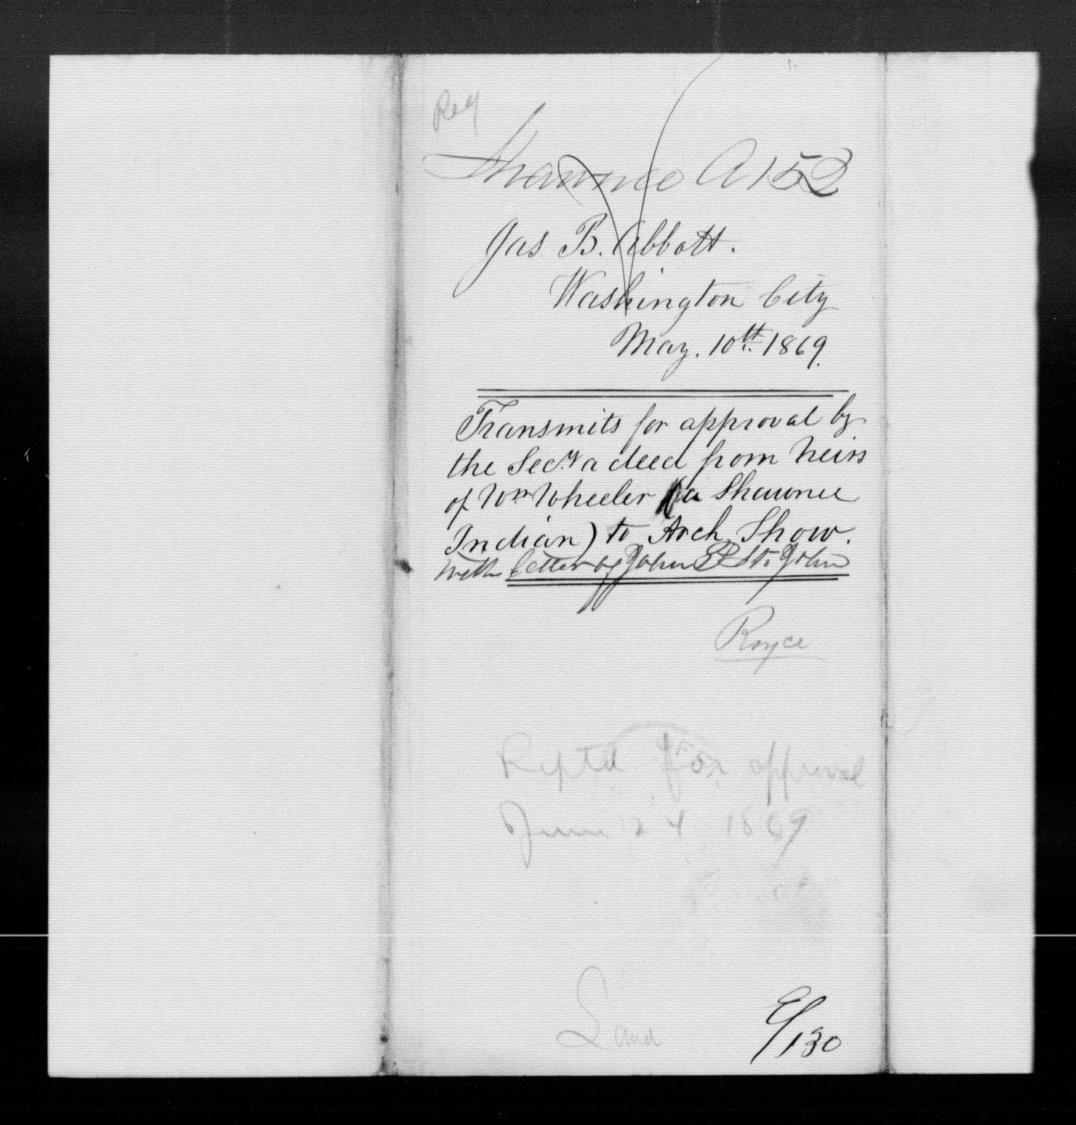 Reg
Shawnee A152
Jas. B. Abbott.
Washington City
May. 10th. 1869.
Transmits for approval by
the Secy a deed from heirs
of Wm Wheeler (a Shawnee
Indian) to Arch Show.
with letter of John P St. John
Royce
Reptd. for approval
June 24 1869
Land
E/130